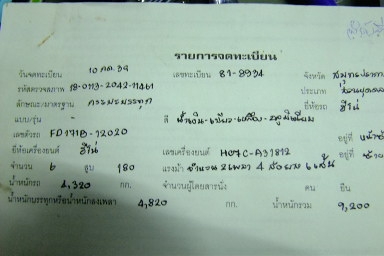 รายการจดทะเบียน
วันจดทะเบียน 10 กค. 39 เลขทะเบียน 81-8934 จังหวัด สมุทรปราการ
รหัสตรวจสภาพ 18-0113-2042-11461 ประเภท
ลักษณะ/มาตรฐาน กระบะบรรทุก ยี่ห้อรถ ฮีโน่
แบบ/รุ่น - สี น้ำเงิน-เขียว-เหลือง-อลูมิเนียม
เลขตัวรถ FD171B-12020 อยู่ที่
ยี่ห้อเครื่องยนต์ ฮีโน่ เลขเครื่องยนต์ H07C-A31812 อยู่ที่
จำนวน 6 สูบ 180 แรงม้า จำนวน 2 เพลา 4 ล้อ ยาง 6 เส้น
น้ำหนักรถ 4,320 กก. จำนวนผู้โดยสารนั่ง คน ยืน
น้ำหนักบรรทุกหรือน้ำหนักลงเพลา 4,820 กก. น้ำหนักรวม 9,200